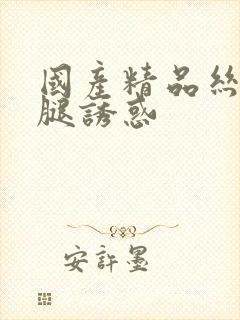 國產精品絲
腿誘惑
安許墨